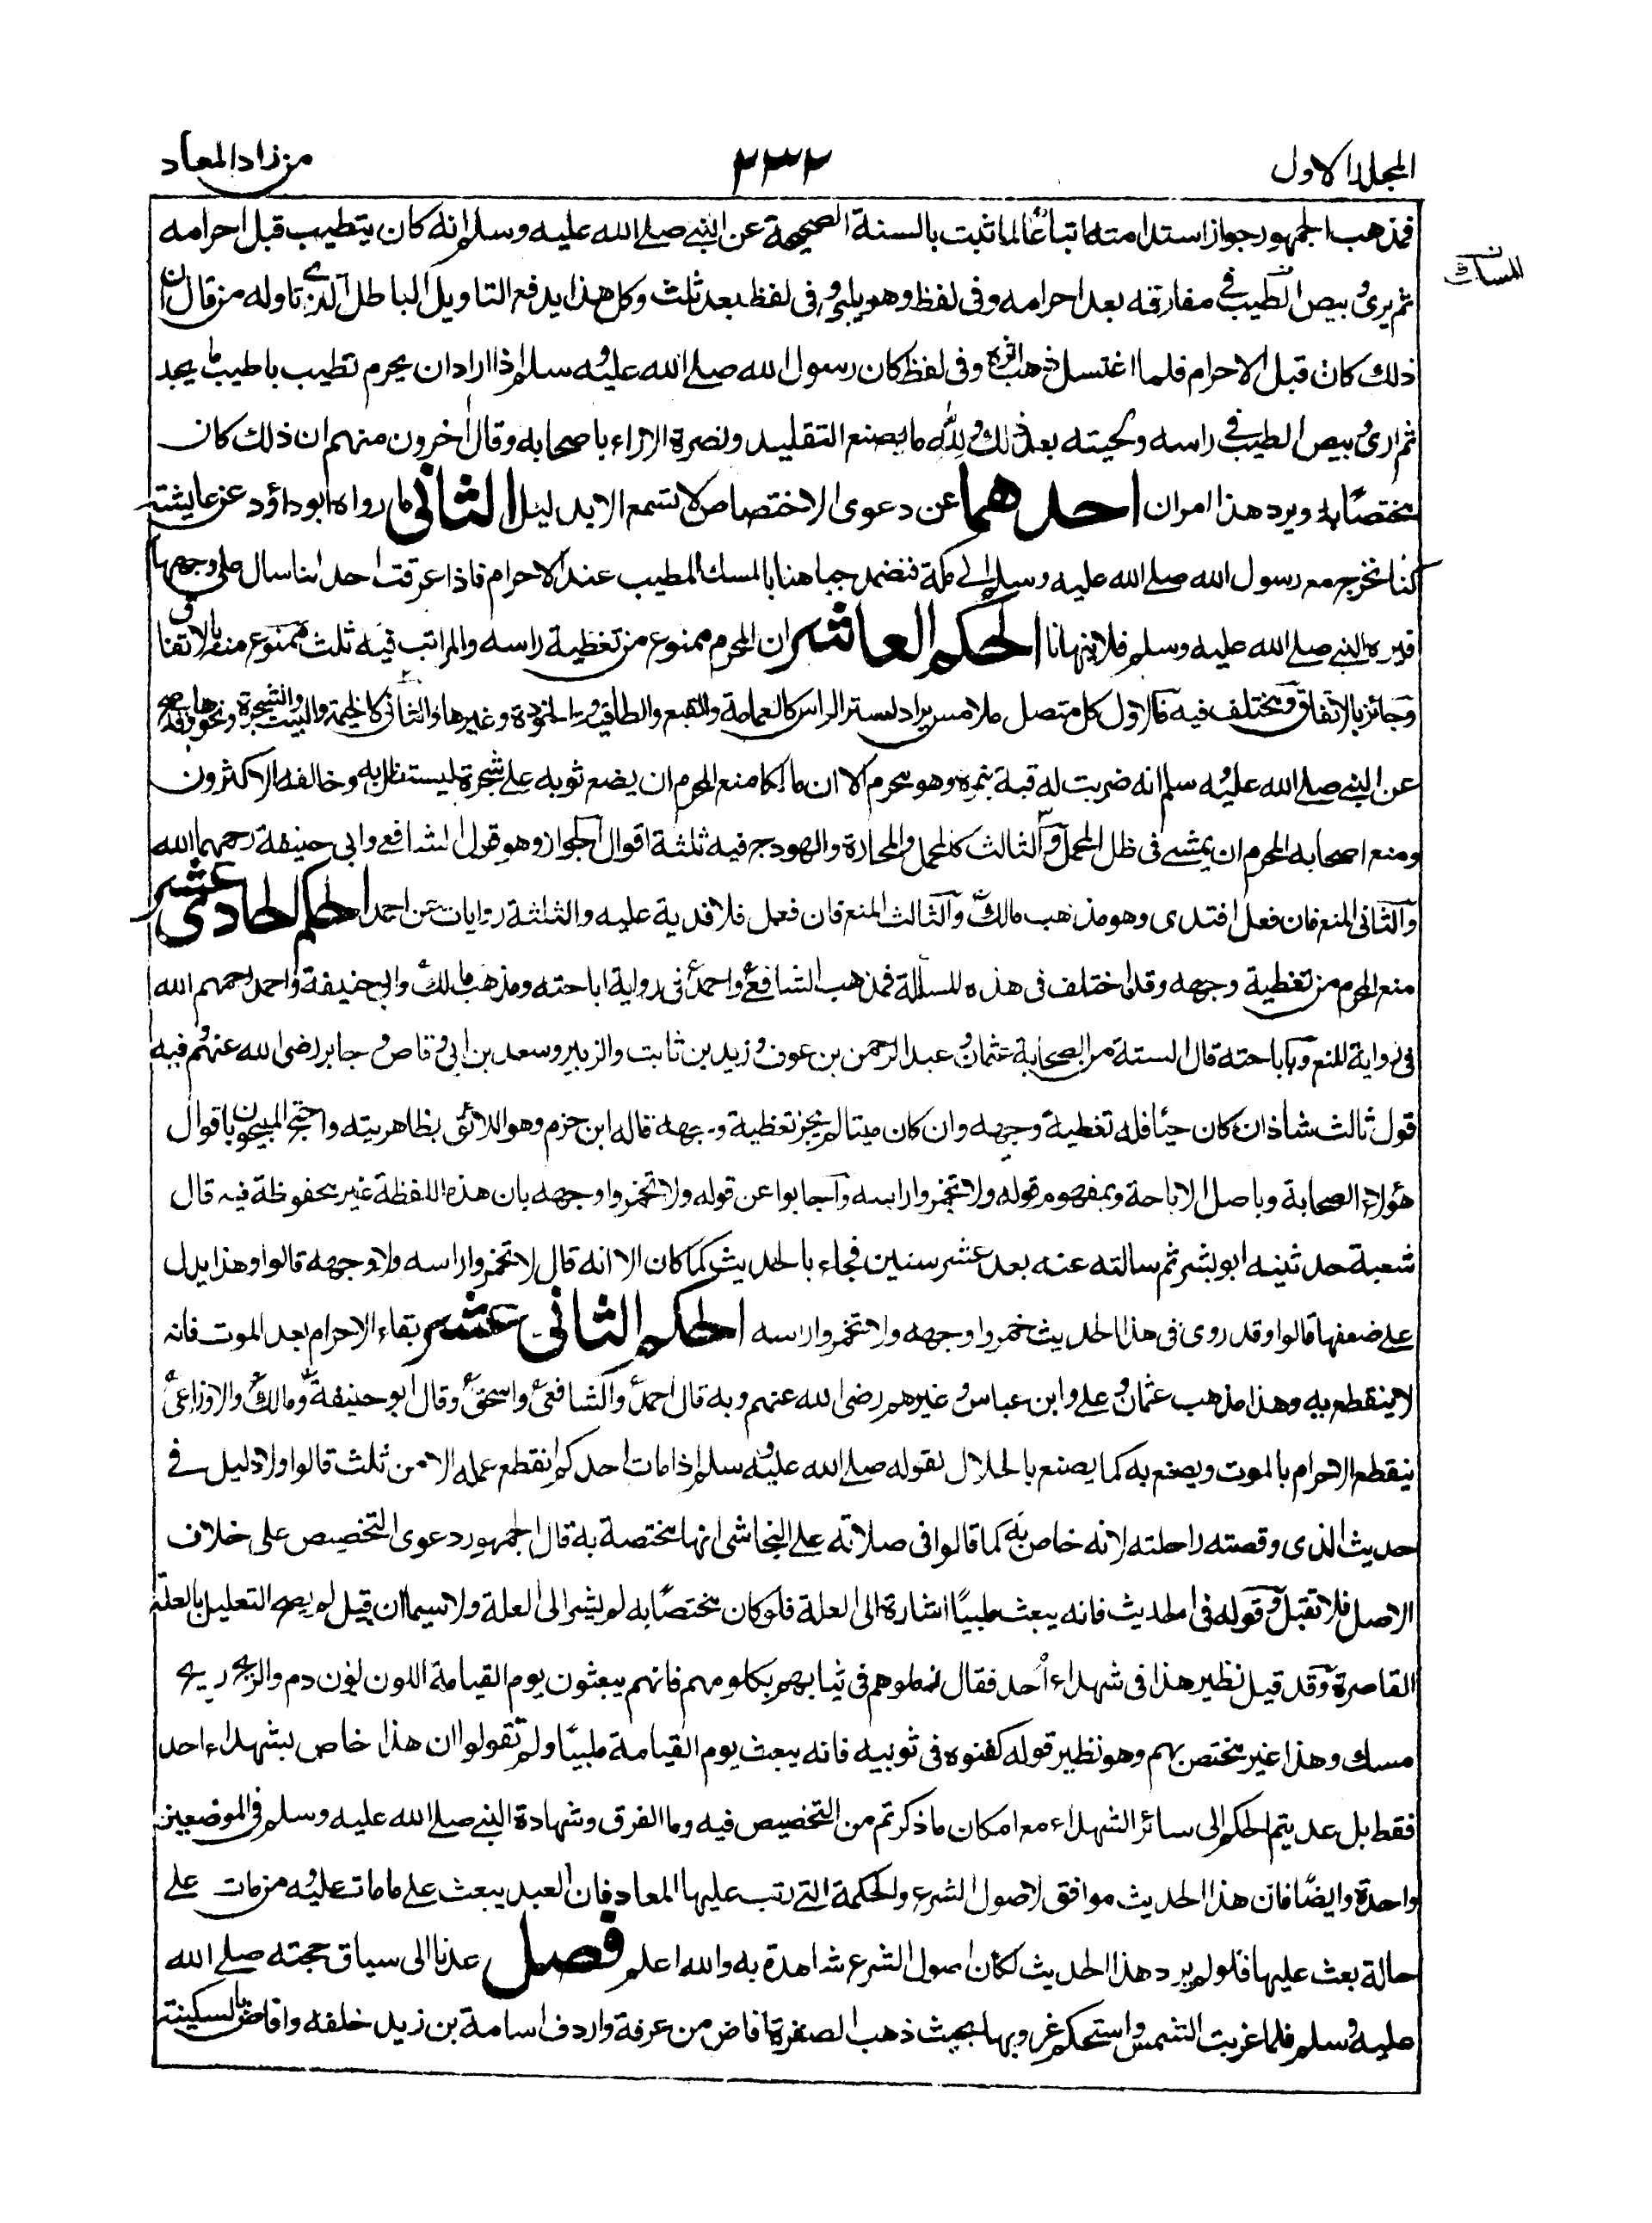 المجلد الاول
٢٣٢
من زاد المعاد
المسك
فمذهب الجمهور جواز استدامته اتباعًا لما ثبت بالسنة الصحيحة عن النبي صلے الله عليه وسلم انه كان يتطيب قبل احرامه
ثم يرى وبيص الطيب في مفارقه بعد احرامه وفى لفظ وهو يلبى وفى لفظ بعد ثلث وكل هذا يدفع التاويل الباطل الذے تاوله من قال ان
ذلك كان قبل الاحرام فلما اغتسل ذهب اثره وفى لفظ كان رسول الله صلے الله عليه وسلم اذا اراد ان يحرم تطيب باطيب ما يجد
ثم ارى وبيص الطيب في راسه ولحيته بعد ذلك ولله ما يصنع التقليد ونصرة الاراء باصحابه وقال اخرون منهم ان ذلك كان
مختصًا به ويرد هذا امران احدهما عن دعوى الاختصاص لا تسمع الا بدليل الثانى ما رواه ابو داؤد عن عايشة
كنا نخرج مع رسول الله صلے الله عليه وسلم الى مكة فنضمد جباهنا بالمسك المطيب عند الاحرام فاذا عرقت احدانا سال على وجهها
فيره النبي صلے الله عليه وسلم فلا ينهانا الحكم العاشر ان المحرم ممنوع من تغطية راسه والمراتب فيه ثلث ممنوع منه بالاتفاق
وجائز بالاتفاق ومختلف فيه فالاول كل متصل ملامس يراد لستر الراس كالعمامة والقبع والطاقية والخوذة وغيرها والثانى كالخيمة والبيت والشجرة ونحوها وقد صح
عن النبي صلے الله عليه وسلم انه ضربت له قبة بنمرة وهو محرم الا ان مالكا منع المحرم ان يضع ثوبه على شجرة ليستظل به وخالفه الاكثرون
ومنع اصحابه المحرم ان يمشے فى ظل المحمل والثالث كالمحمل والمحارة والهودج فيه ثلثة اقوال الجواز وهو قول الشافعے وابى حنيفة رحمهما الله
والثانى المنع فان فعل افتدى وهو مذهب مالك والثالث المنع فان فعل فلا فدية عليه والثلثة روايات عن احمد الحكم الحادى عشر
منع المحرم من تغطية وجهه وقد اختلف فى هذه المسألة فمذهب الشافعى واحمد فى رواية اباحته ومذهب مالك وابى حنيفة واحمد رحمهم الله
فى رواية المنع وباباحته قال الستة من الصحابة عثمان وعبد الرحمن بن عوف وزيد بن ثابت والزبير وسعد بن ابى وقاص وجابر رضى الله عنهم وفيه
قول ثالث شاذ ان كان حيًا فله تغطية وجهه وان كان ميتا لم يجز تغطية وجهه قاله ابن حزم وهو اللائق بظاهريته واحتج المبيحون باقوال
هؤلاء الصحابة وباصل الاباحة وبمفهوم قوله ولا تخمروا راسه واجابوا عن قوله ولا تخمروا وجهه بان هذه اللفظة غير محفوظة فيه قال
شعبة حدثنيه ابو بشر ثم سالته عنه بعد عشر سنين فجاء بالحديث كما كان الا انه قال لا تخمروا راسه ولا وجهه قالوا وهذا يدل
على ضعفها قالوا وقد روى فى هذا الحديث خمروا وجهه ولا تخمروا راسه الحكم الثانى عشر بقاء الاحرام بعد الموت فانه
لا ينقطع به وهذا مذهب عثمان وعلى وابن عباس وغيرهم رضى الله عنهم وبه قال احمد والشافعى واسحق وقال ابو حنيفة ومالك والاوزاعى
ينقطع الاحرام بالموت ويصنع به كما يصنع بالحلال لقوله صلے الله عليه وسلم اذا مات احدكم انقطع عمله الا من ثلث قالوا ولا دليل فى
حديث الذى وقصته راحلته لانه خاص به كما قالوا فى صلاته على النجاشى انها مختصة به قال الجمهور دعوى التخصيص على خلاف
الاصل فلا تقبل وقوله فى الحديث فانه يبعث ملبيًا اشارة الى العلة فلو كان مختصًا به لم يشر الى العلة ولا سيما ان قيل لم يصح التعليل بالعلة
القاصرة وقد قيل نظير هذا فى شهداء أحد فقال زملوهم فى ثيابهم بكلومهم فانهم يبعثون يوم القيامة اللون لون دم والريح ريح
مسك وهذا غير مختص بهم وهو نظير قوله كفنوه فى ثوبيه فانه يبعث يوم القيامة ملبيًا ولم تقولوا ان هذا خاص بشهداء احد
فقط بل عديتم الحكم الى سائر الشهداء مع امكان ما ذكرتم من التخصيص فيه وما الفرق وشهادة النبي صلے الله عليه وسلم فى الموضعين
واحدة وايضًا فان هذا الحديث موافق لاصول الشرع والحكمة التى رتب عليها المعاد فان العبد يبعث على ما مات عليه ومن مات على
حالة بعث عليها فلو لم يرد هذا الحديث لكان اصول الشرع شاهدة به والله اعلم فصل عدنا الى سياق حجته صلے الله
عليه وسلم فلما غربت الشمس واستحكم غروبها بحيث ذهب الصفرة افاض من عرفة واردف اسامة بن زيد خلفه وافاض بالسكينة